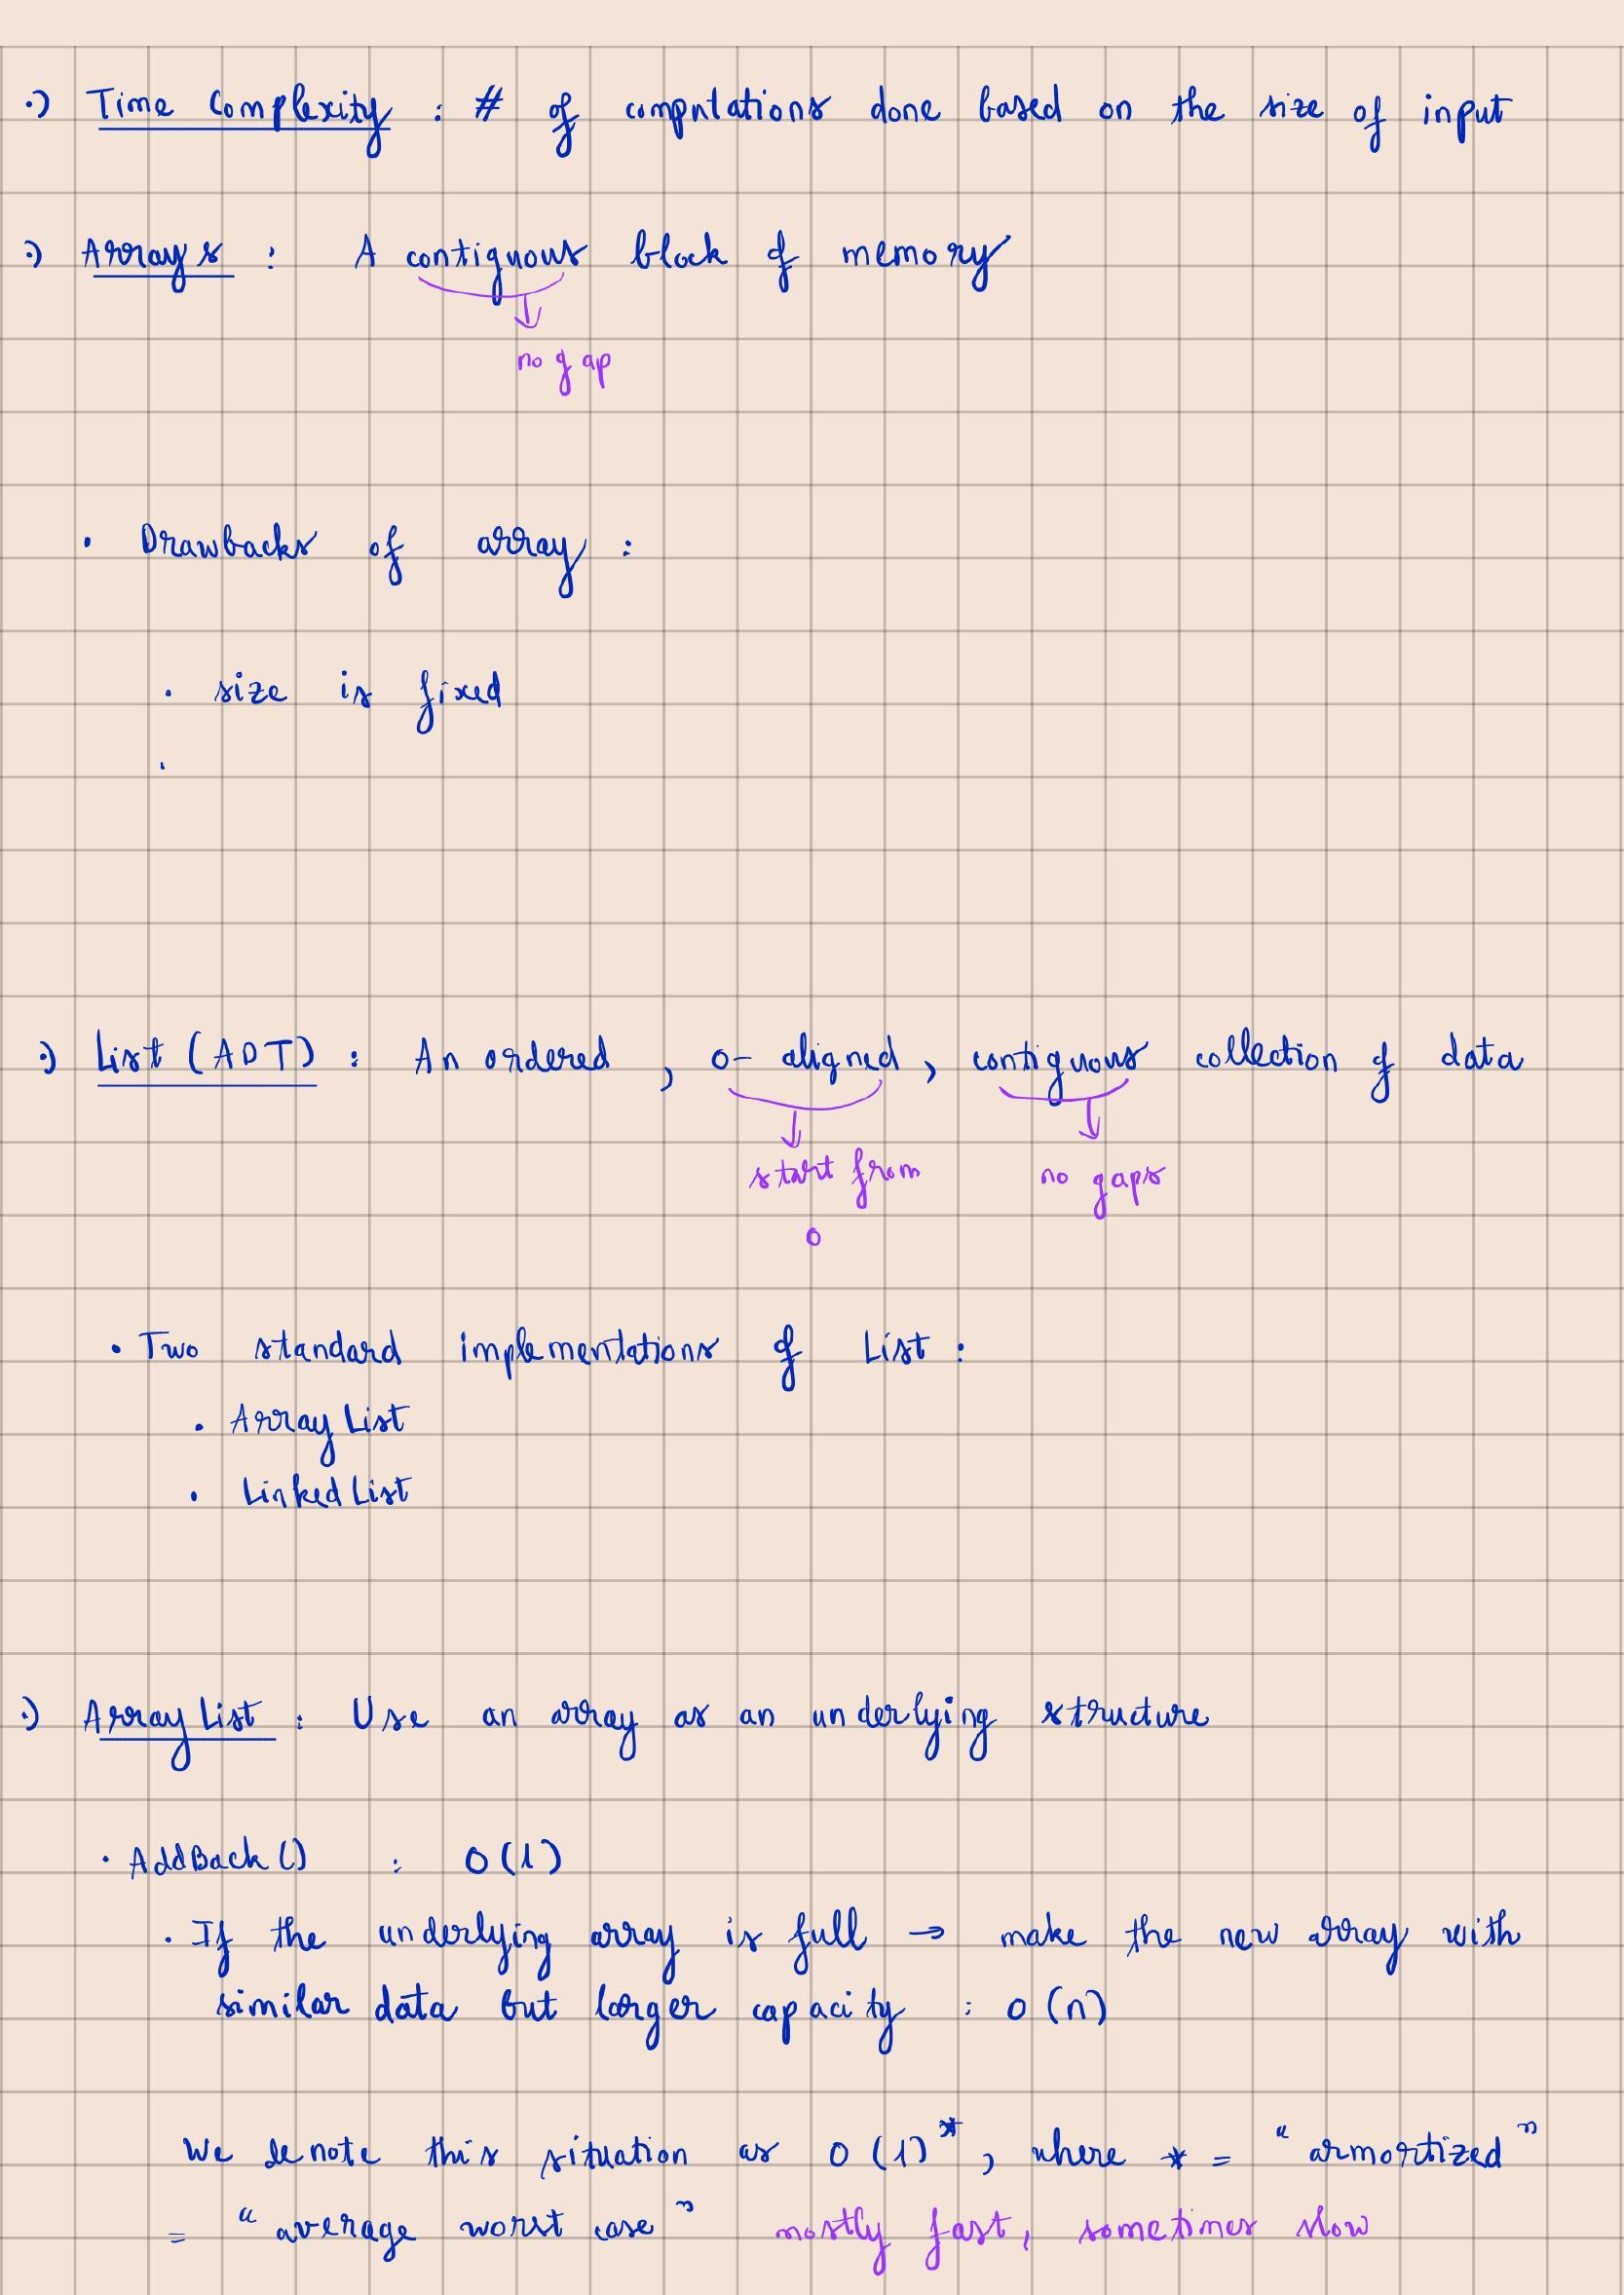 ·) Time Complexity : # of computations done based on the size of input
·) Arrays : A contiguous block of memory
no gap
· Drawbacks of array :
· size is fixed
·
·) List (ADT) : An ordered , 0- aligned , contiguous collection of data
start from no gaps
0
· Two standard implementations of List :
· ArrayList
· LinkedList
·) ArrayList : Use an array as an underlying structure
· AddBack () : O(1)
· If the underlying array is full → make the new array with
similar data but larger capacity : O(n)
We denote this situation as O(1)*, where * = "armortized"
= "average worst case" mostly fast, sometimes slow